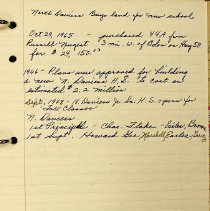 North Daviess Buys land for new school
Oct 29, 1965 - purchased 44A from
Russell Nugent 3 mi. W. of Odon on Hwy 58
for $ 29,150.00
1966 - Plans were approved for building
a new N. Daviess H.S. to cost an
estimated $2.2 million
Sept. 1968 - N. Daviess Jr. Sr. H.S. opens for
Fall Classes
N. Daviess
1st Principal - Chas. Flake -
1st Supt - Howard